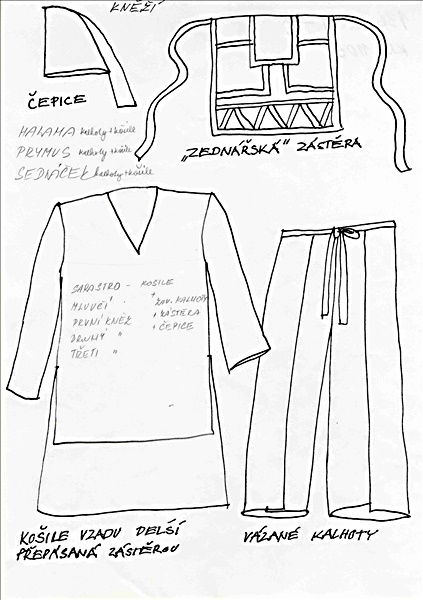 KNĚŽÍ
ČEPICE
„ZEDNÁŘSKÁ" ZÁSTĚRA
HALAMA kalhoty + košile
PRYMUS kalhoty + košile
SEDNÁČEK kalhoty + košile
SARASTRO - KOŠILE
MLUVČÍ " + ZAV. KALHOTY
PRVNÍ KNĚZ + ZÁSTĚRA
DRUHÝ " + ČEPICE
TŘETÍ "
KOŠILE VZADU DELŠÍ
PŘEPÁSANÁ ZÁSTĚROU
VÁZANÉ KALHOTY